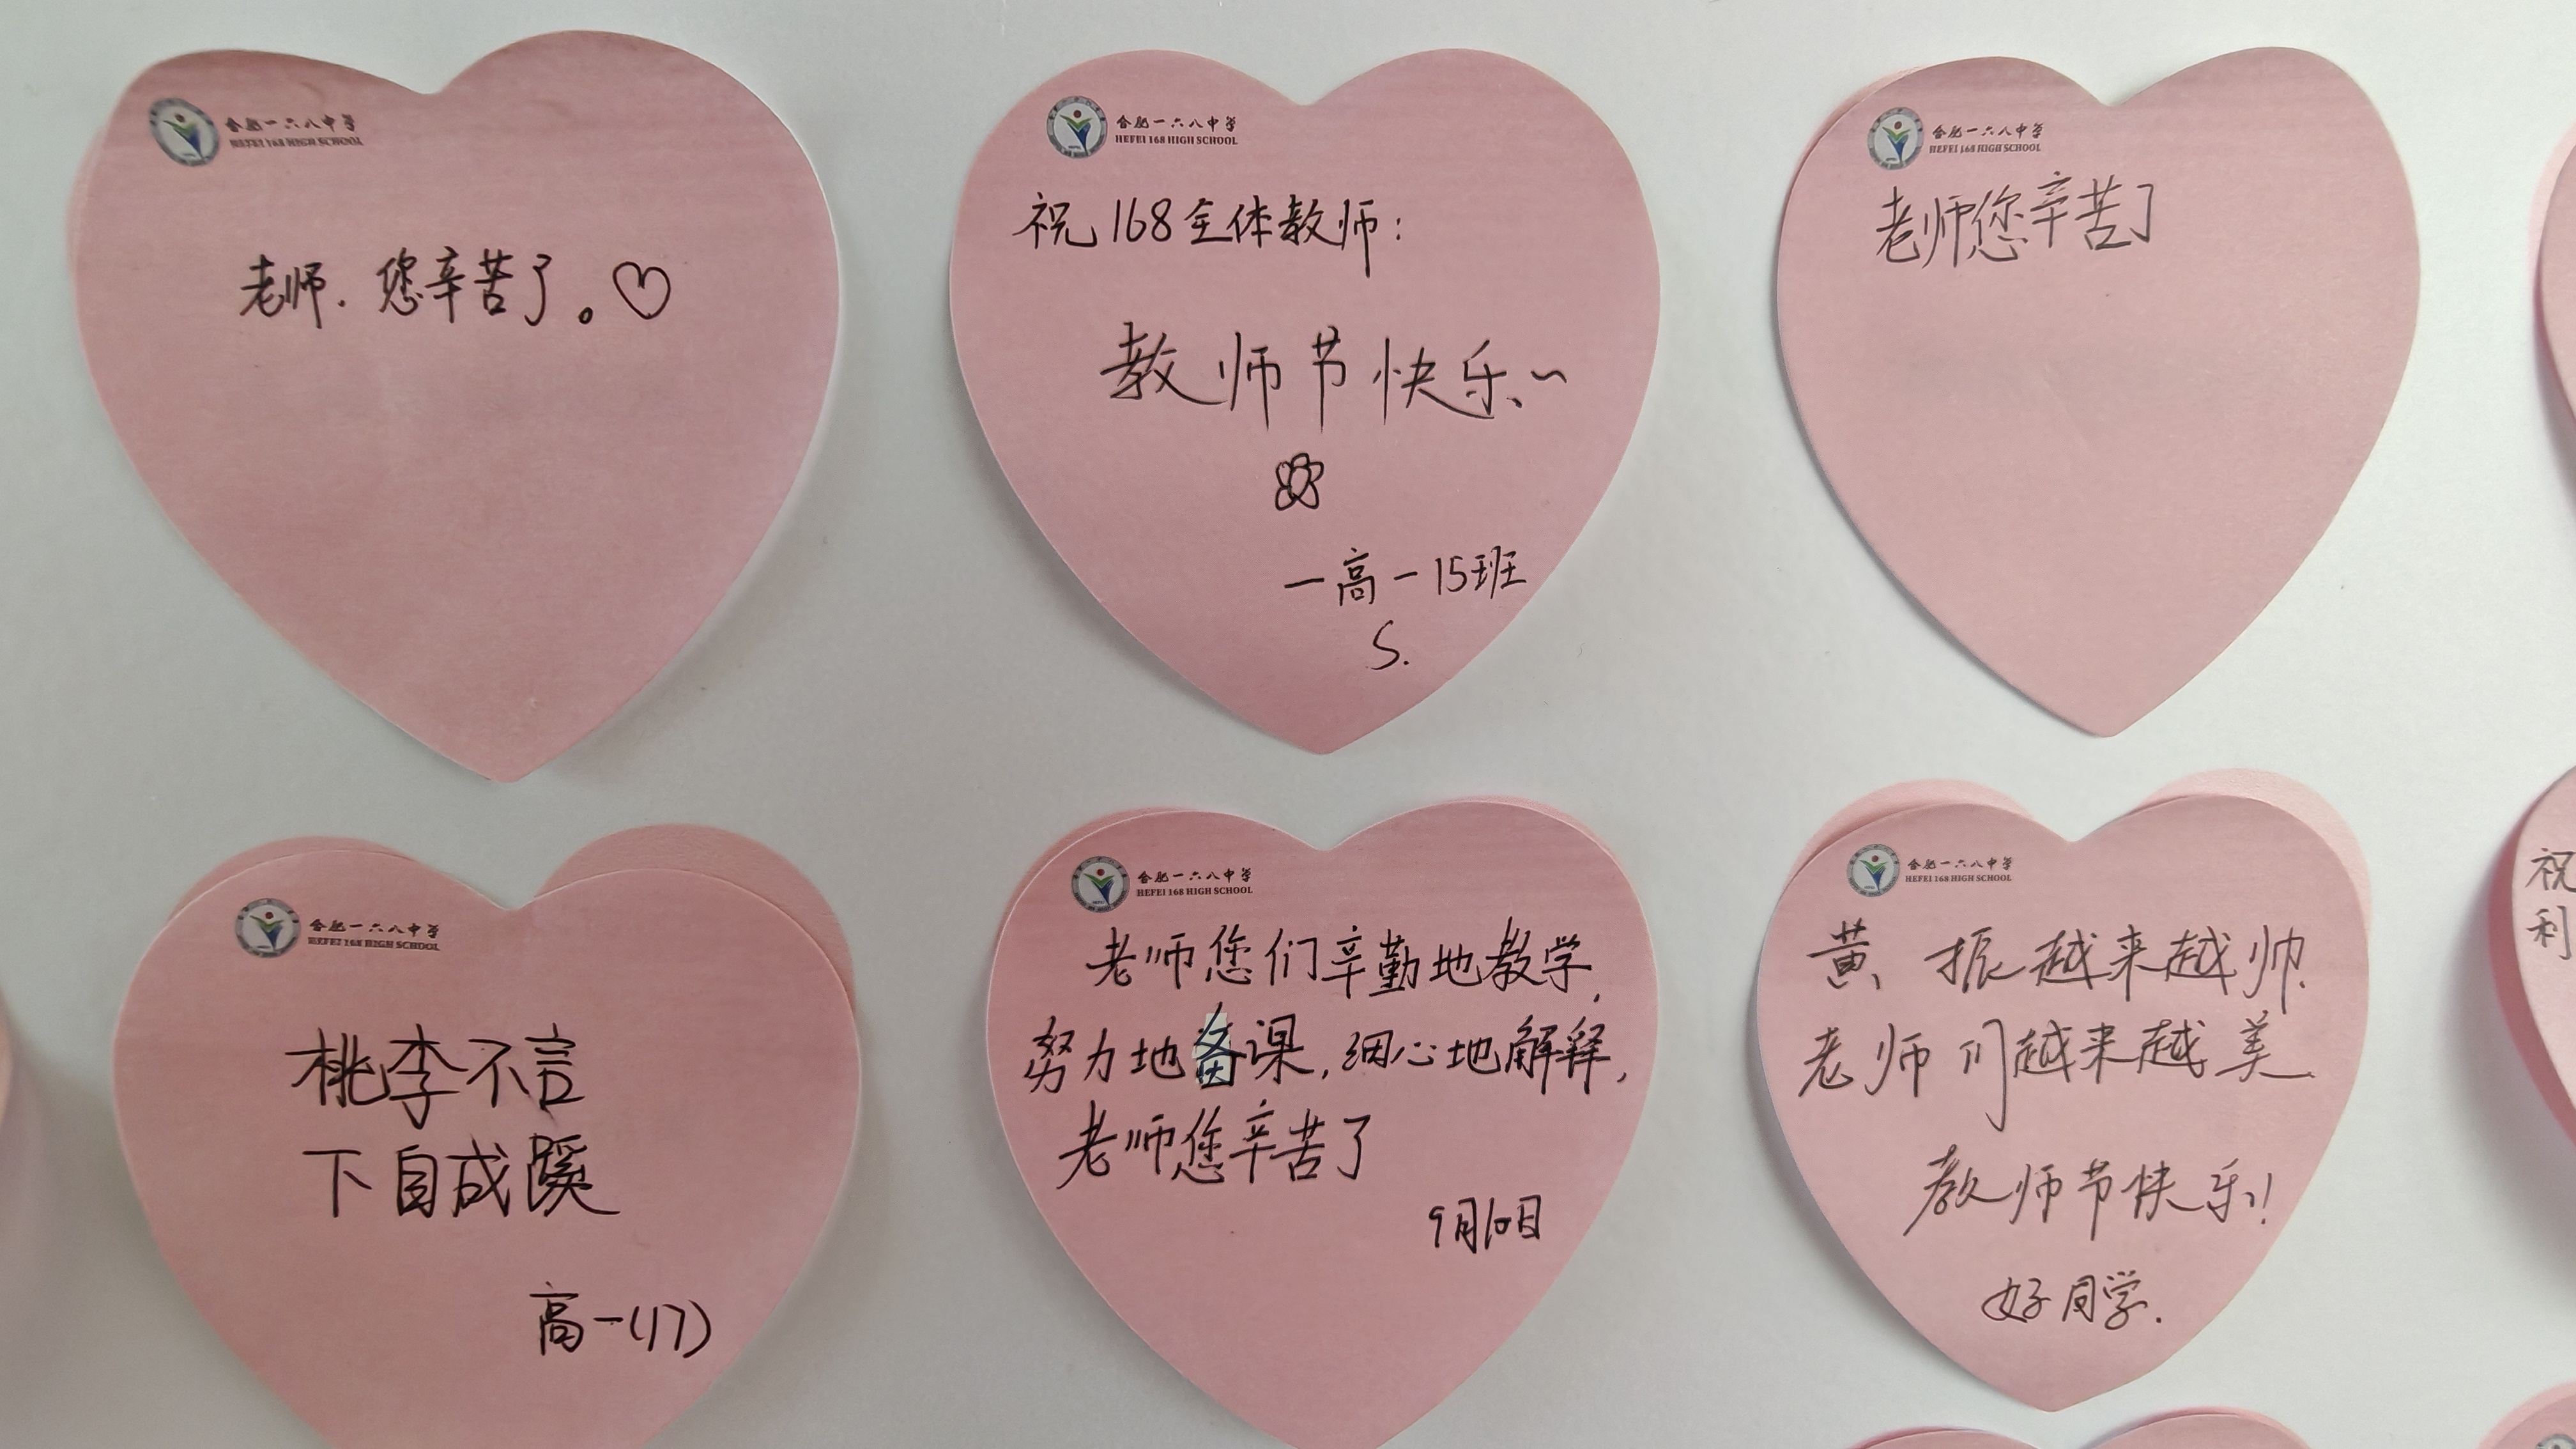 合肥一六八中学
HEFEI 168 HIGH SCHOOL
老师.您辛苦了。
合肥一六八中学
HEFEI 168 HIGH SCHOOL
祝168全体教师:
教师节快乐~
一高一15班
S.
合肥一六八中学
HEFEI 168 HIGH SCHOOL
老师您辛苦了
合肥一六八中学
HEFEI 168 HIGH SCHOOL
桃李不言
下自成蹊
高一(17)
合肥一六八中学
HEFEI 168 HIGH SCHOOL
老师您们辛勤地教学,
努力地备课,细心地解释,
老师您辛苦了
9月10日
合肥一六八中学
HEFEI 168 HIGH SCHOOL
黄振越来越帅.
老师们越来越美
教师节快乐!
好同学.
祝
利